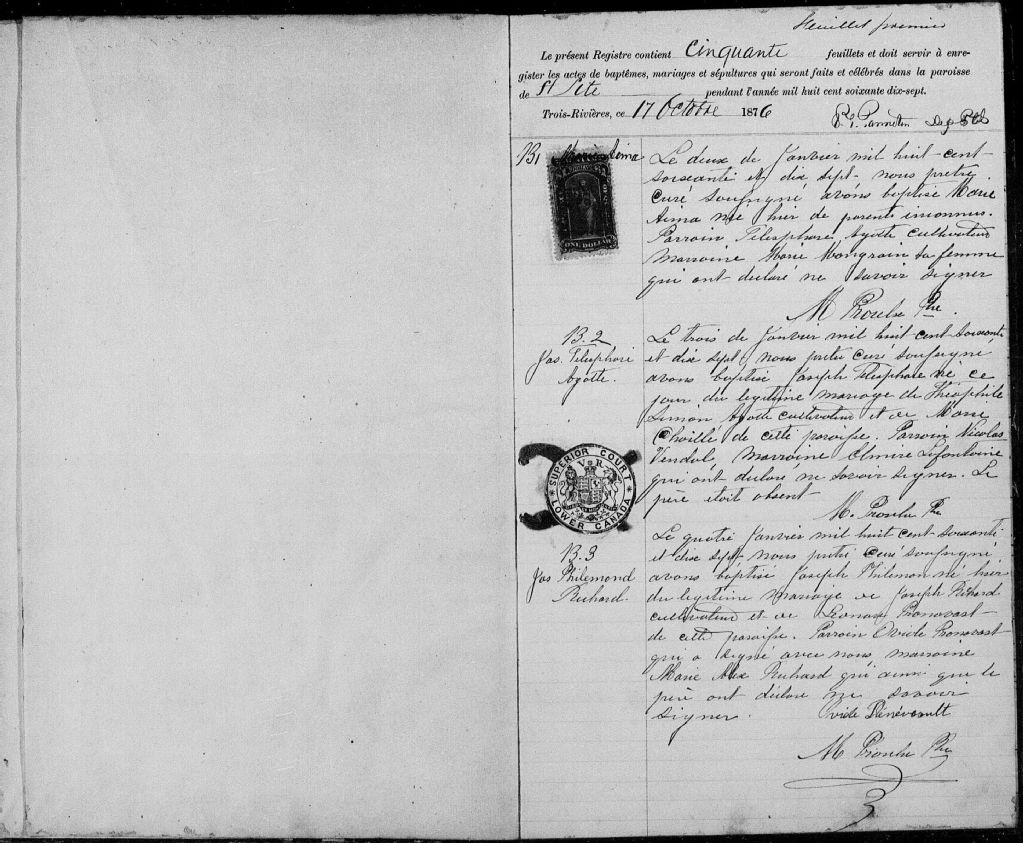 Feuillet premier
Le présent Registre contient Cinquante feuillets et doit servir à enre-
gister les actes de baptêmes, mariages et sépultures qui seront faits et célébrés dans la paroisse
de St Tite pendant l'année mil huit cent soixante dix-sept.
Trois-Rivières, ce 17 Octobre 1876
Dep
B1 Marie Aima
ONE DOLLAR
Le deux de Janvier mil huit-cent-
soixante et dix sept- nous pretre
curé soussigné avons baptisé Marie
Aima née hier de parents inconnus.
Parrain Télesphore Ayotte cultivateur
marraine Marie Mongrain sa femme
qui ont déclaré ne savoir signer
M Proulx Ptre.
B. 2
Jos. Télesphore
Ayotte.
Le trois de Janvier mil huit-cent-soixante
et dix sept, nous pretre curé soussigné
avons baptisé Joseph Télesphore né ce
jour du legitime mariage de Théophile
Simon Ayotte cultivateur et de Marie
de cette paroisse. Parrain Nicolas
marraine Elmire Lafontaine
qui ont déclaré ne savoir signer. Le
père etait absent-
M. Proulx Ptre
SUPERIOR COURT
V R
LOWER CANADA
B.3
Jos Philemond
Richard.
Le quatre Janvier mil huit cent soixante
et dix sept- nous pretre curé soussigné
avons baptisé Joseph Philemon né hier
du legitime mariage de Joseph Richard
cultivateur et de Pronovost-
de cette paroisse. Parrain Ovide Pronovost-
qui a signé avec nous, marraine
Marie Alex Richard qui ainsi que le
père ont déclaré ne savoir
signer. Ovide
M Proulx Ptre